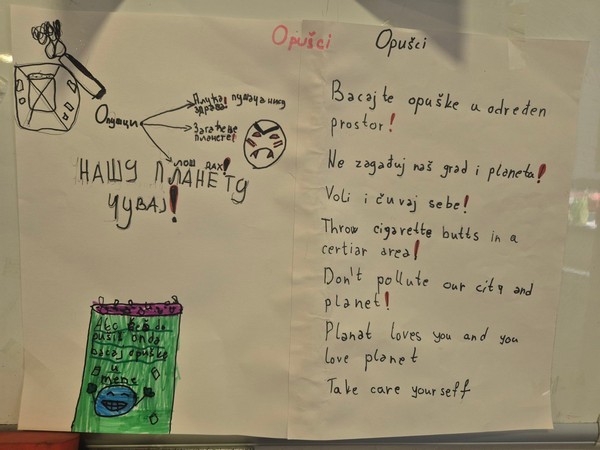 Opušci
Opušci
Опушци
Плућа пушача нису
здрава!
Загађење
планете!
лош дах!
НАШУ ПЛАНЕТУ
ЧУВАЈ!
Ako
pušiš onda
bacaj opuške
u
mene
Bacajte opuške u određen
prostor!
Ne zagađuj naš grad i planeta!
Voli i čuvaj sebe!
Throw cigarette butts in a
certiar area!
Don't pollute our city and
planet!
Planat loves you and you
love planet
Take care yourself